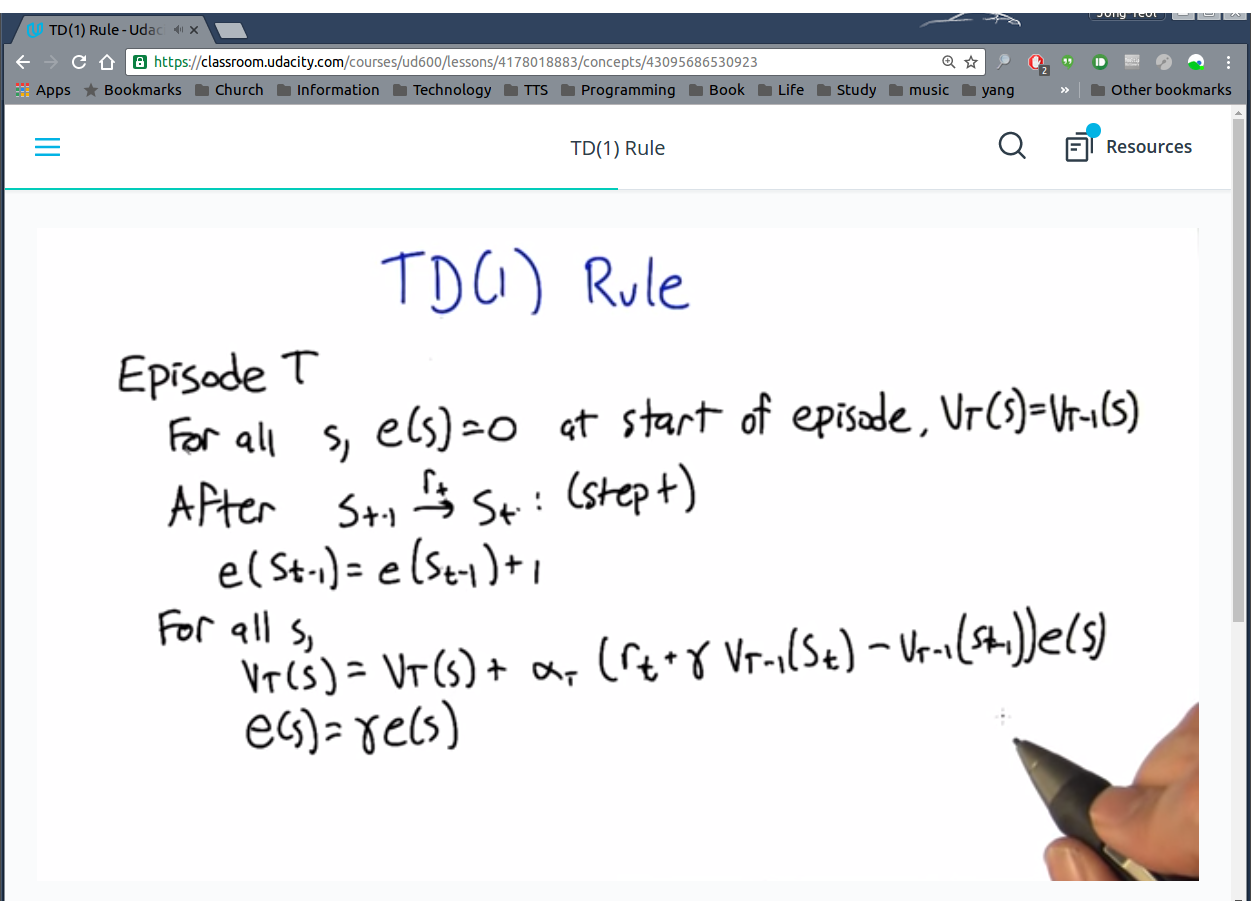 Jong Yeol
TD(1) Rule - Udac
https://classroom.udacity.com/courses/ud600/lessons/4178018883/concepts/43095686530923
2
Apps Bookmarks Church Information Technology TTS Programming Book Life Study music yang » Other bookmarks
TD(1) Rule
Resources
TD(1) Rule
Episode T
For all s, e(s)=0 at start of episode, V_T(s)=V_{T-1}(s)
After S_{t-1} \xrightarrow{r_t} S_t : (step t)
e(S_{t-1})= e(S_{t-1})+1
For all s,
V_T(s)= V_T(s)+ α_T (r_t+γ V_{T-1}(S_t) - V_{T-1}(S_{t-1}))e(s)
e(s)=γe(s)